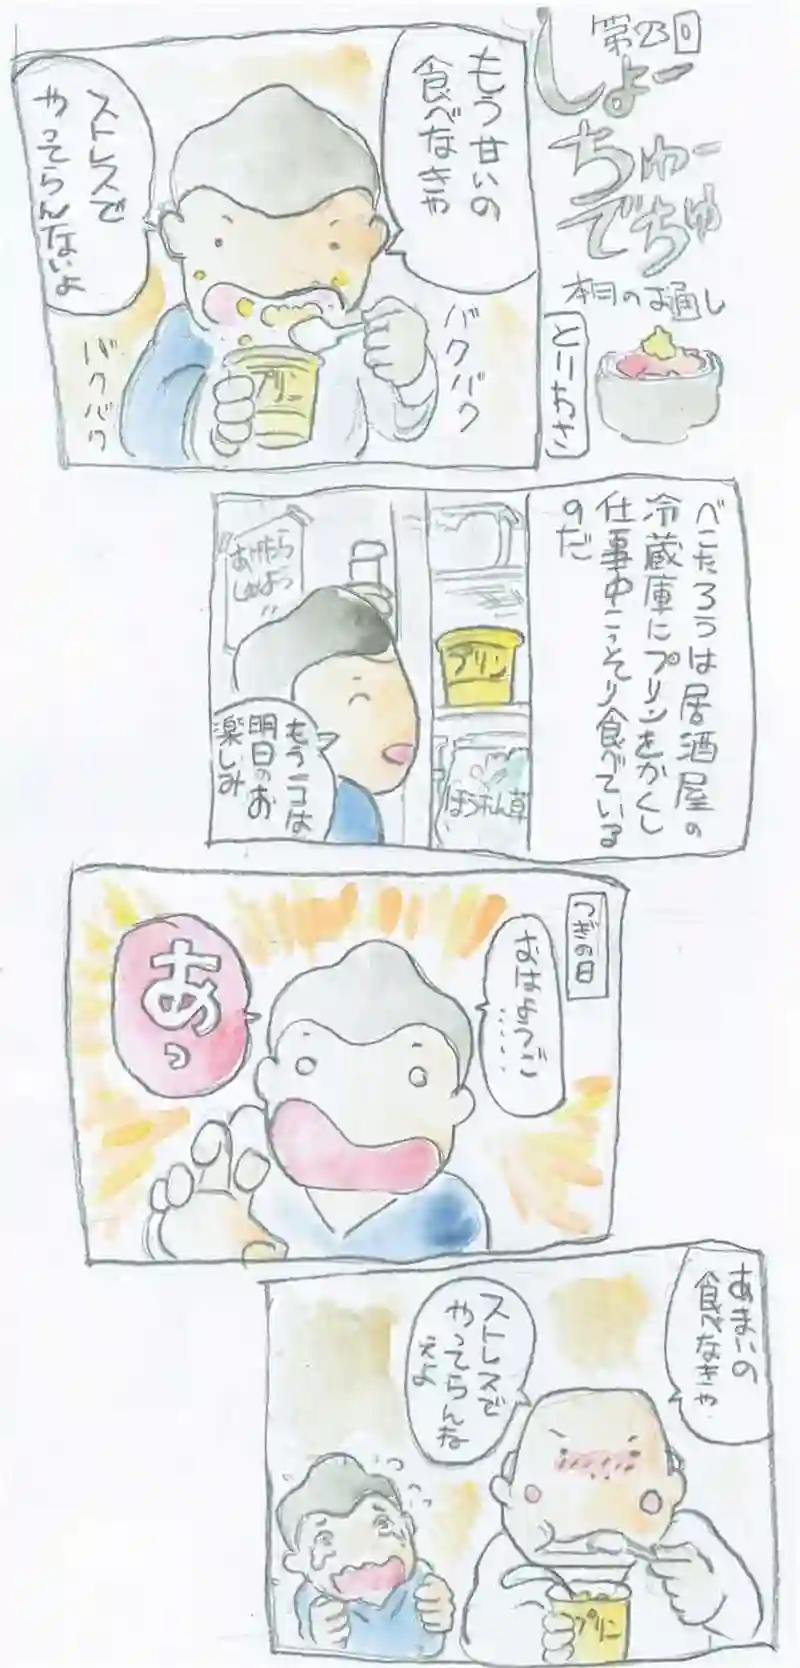 第23回
しょー
ちゅー
でちゅ
本日のお通し
とりわさ
もう甘いの
食べなきゃ
ストレスで
やってらんないよ
バクバク
バクバク
プリン
べこたろうは居酒屋の
冷蔵庫にプリンをかくし
仕事中こっそり食べている
のだ
プリン
ほうれん草
もう一コは
明日のお
楽しみ
つぎの日
おはようご
……
あっ
あまいの
食べなきゃ
ストレスで
やってらんね
えよ
プリン